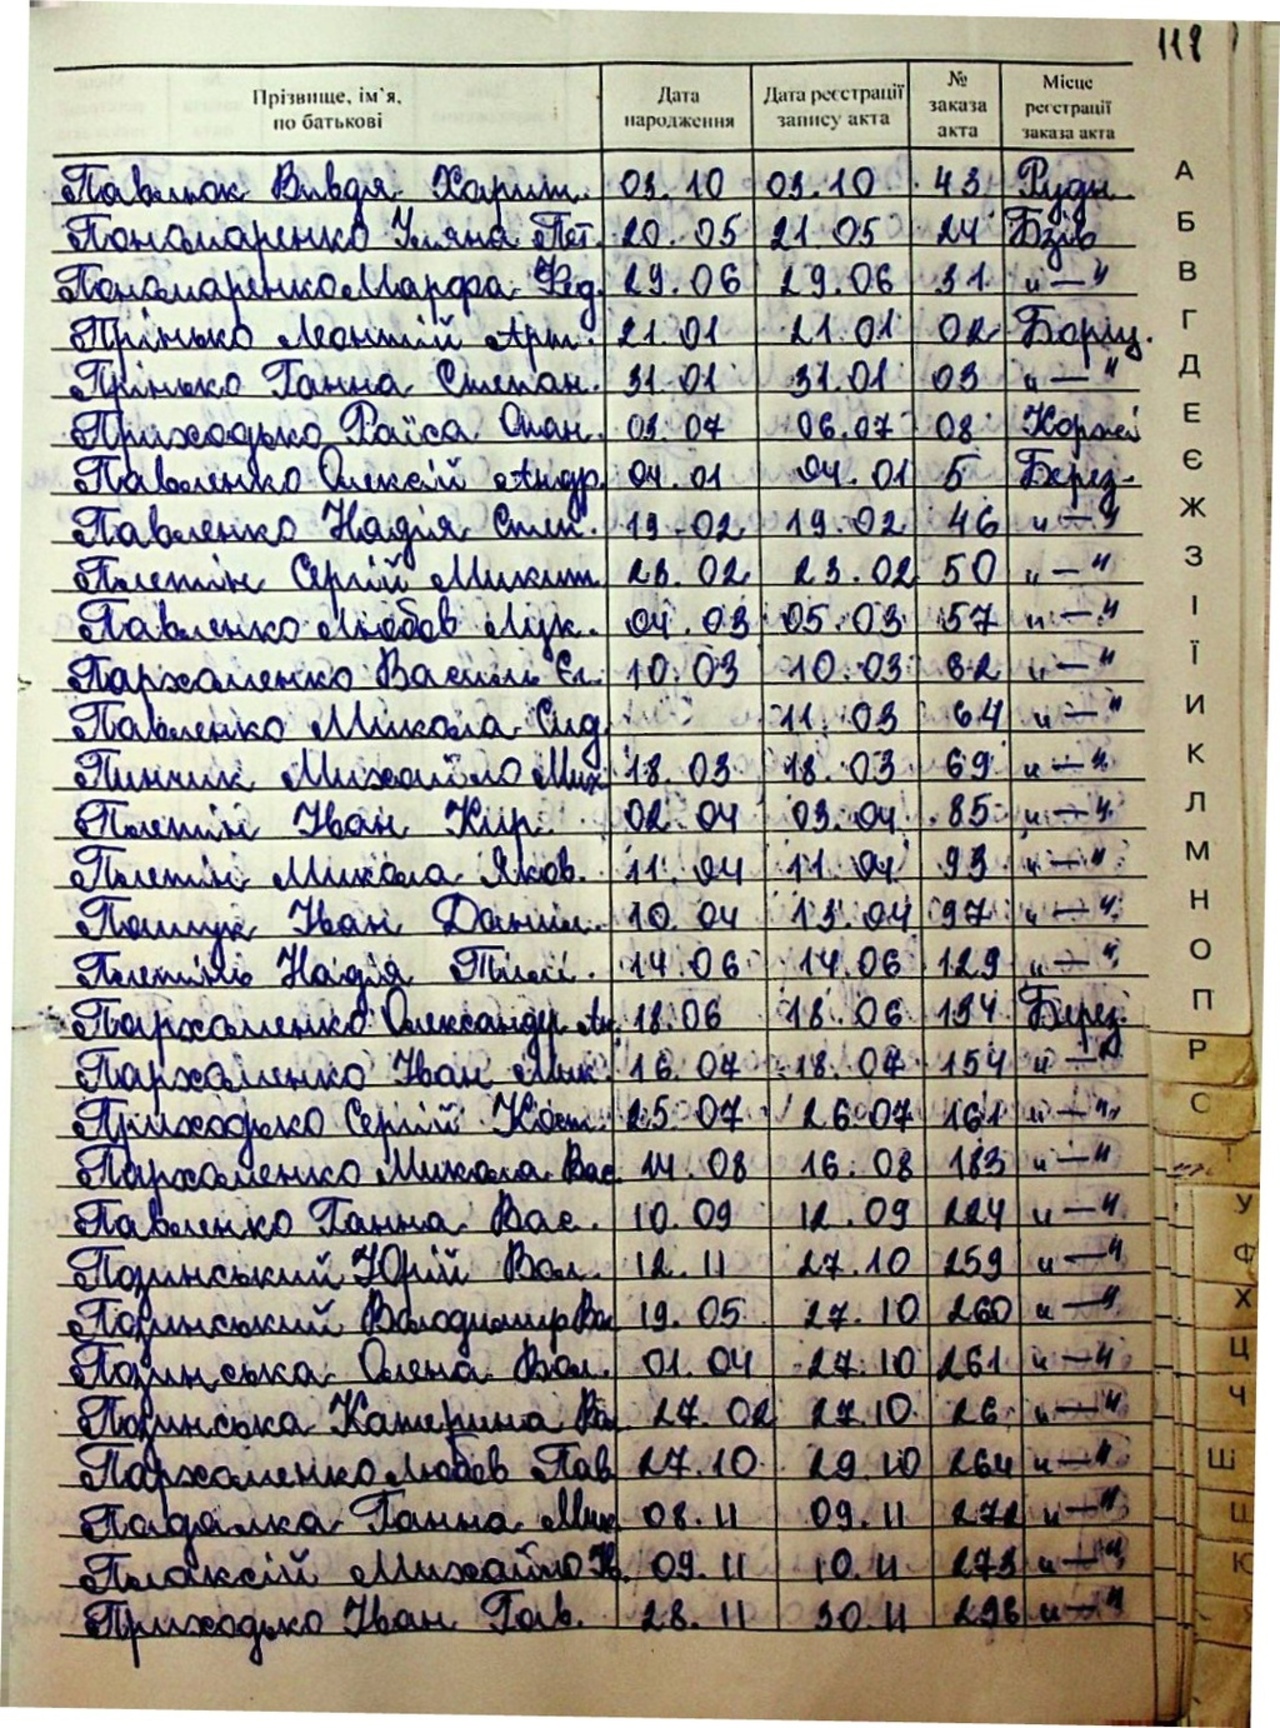 118
Прізвище, ім'я, по батькові Дата народження Дата реєстрації запису акта № заказа акта Місце реєстрації заказа акта
Павлюк Вивдя Харит. 03.10 03.10 43 Рудн.
Пономаренко Уляна Пет. 20.05 21.05 24 Бзів
Пономаренко Марфа Фед. 29.06 29.06 31 "—"
Прінько Леонтій Арт. 21.01 21.01 02 Борщ.
Прінько Ганна Степан. 31.01 31.01 03 "—"
Приходько Раїса Опан. 03.07 06.07 08 Коржі
Павленко Олексій Андр. 04.01 04.01 5 Берез.
Павленко Надія Степ. 19.02 19.02 46 "—"
Плетін Сергій Микит. 23.02 23.02 50 "—"
Павленко Любов Лук. 04.03 05.03 57 "—"
Пархоменко Василь Єг. 10.03 10.03 62 "—"
Павленко Микола Сид. 11.03 64 "—"
Пинчик Михайло Мих. 18.03 18.03 69 "—"
Плетін Іван Кир. 02.04 03.04 85 "—"
Плетін Микола Яков. 11.04 11.04 93 "—"
Пащук Іван Данил. 10.04 13.04 97 "—"
Плетінь Надія 14.06 14.06 129 "—"
Пархоменко Олександр Ан. 18.06 18.06 134 Берез.
Пархоменко Іван Мик. 16.07 18.07 154 "—"
Приходько Сергій Кост. 25.07 26.07 161 "—"
Пархоменко Микола Вас. 14.08 16.08 183 "—"
Павленко Ганна Вас. 10.09 12.09 224 "—"
Подинський Юрій Вол. 12.11 27.10 259 "—"
Подинський Володимир Во 19.05 27.10 260 "—"
Подинська Олена Вол. 01.04 27.10 261 "—"
Подинська Катерина Во 27.02 27.10 26 "—"
Пархоменко Любов Пав 27.10 29.10 264 "—"
Падалка Ганна Мик 08.11 09.11 272 "—"
Плаксій Михайло 09.11 10.11 273 "—"
Приходько Іван Гав. 28.11 30.11 296 "—"
А
Б
В
Г
Д
Е
Є
Ж
З
І
Ї
И
К
Л
М
Н
О
П
Р
С
Т
У
Ф
Х
Ц
Ч
Ш
Щ
Ю